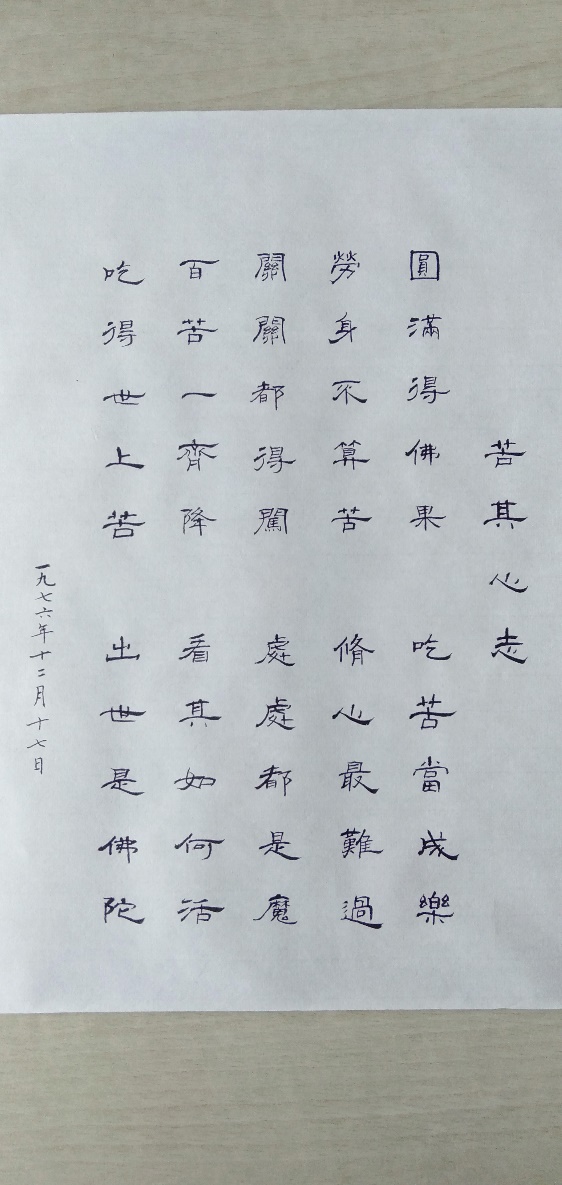 苦其心志
圓滿得佛果 吃苦當成樂
勞身不算苦 脩心最難過
關關都得闖 處處都是魔
百苦一齊降 看其如何活
吃得世上苦 出世是佛陀
一九七六年十二月十七日